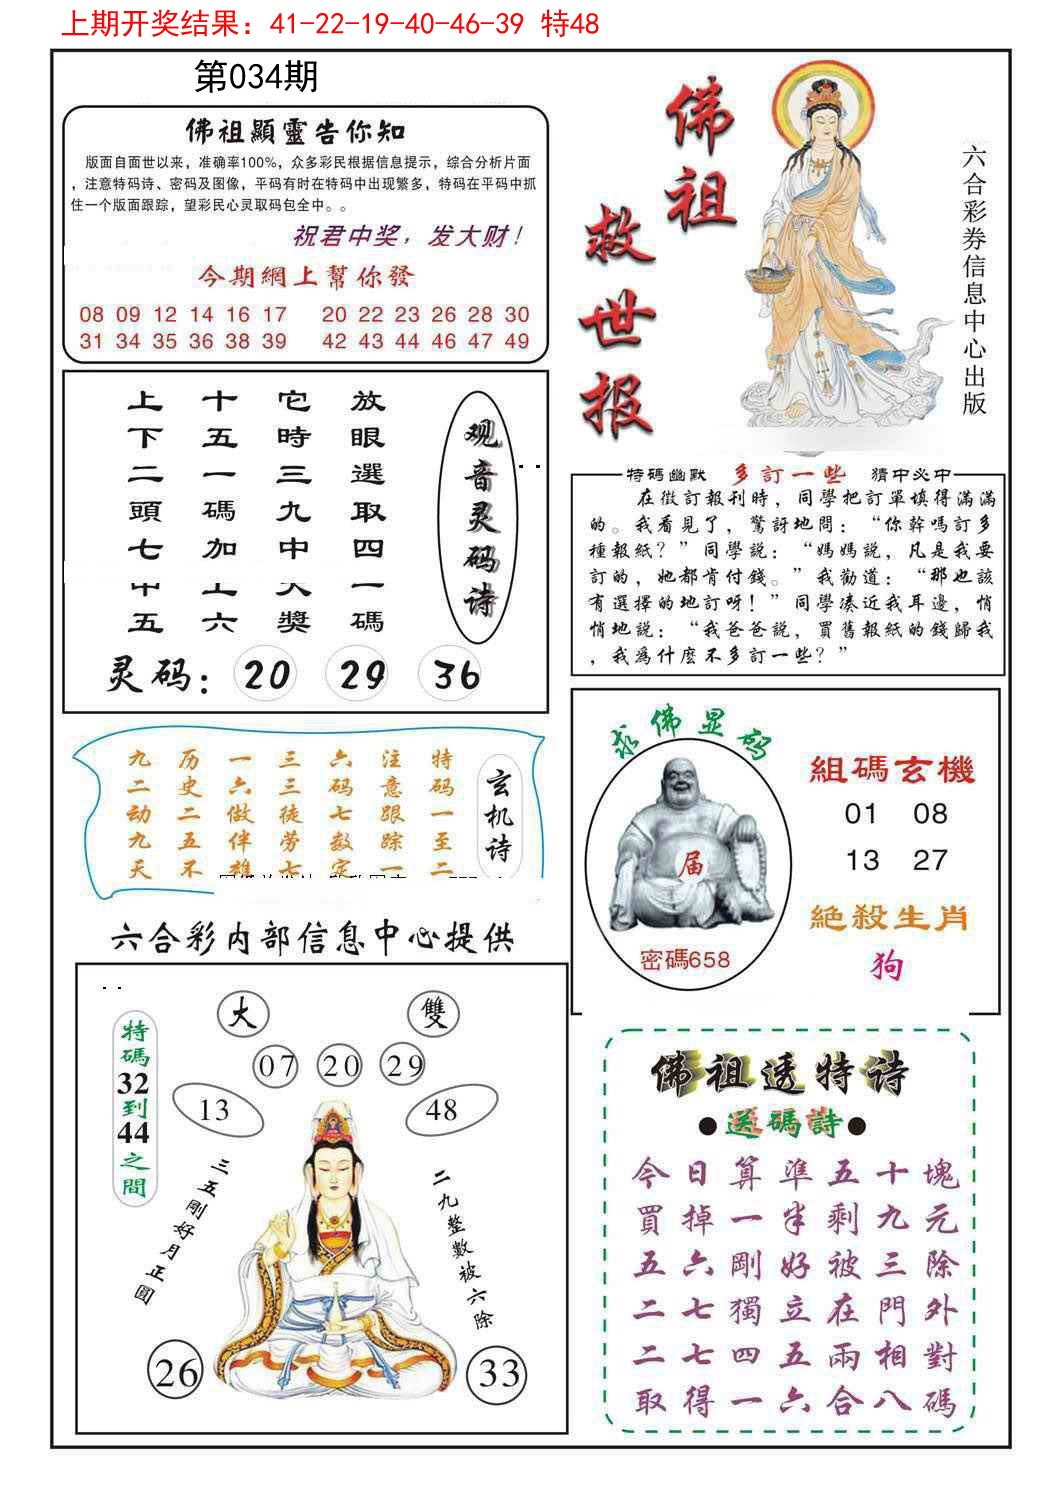 上期开奖结果：41-22-19-40-46-39 特48
第034期
佛祖顯靈告你知
版面自面世以来，准确率100%，众多彩民根据信息提示，综合分析片面
，注意特码诗、密码及图像，平码有时在特码中出现繁多，特码在平码中抓
住一个版面跟踪，望彩民心灵取码包全中。。
祝君中奖，发大财！
今期網上幫你發
08 09 12 14 16 17 20 22 23 26 28 30
31 34 35 36 38 39 42 43 44 46 47 49
佛祖
救世报
六合彩券信息中心出版
上十它放
下五時眼
二一三選
頭碼九取
七加中四
中上大一
五六獎碼
观音灵码诗
灵码：20 29 36
特碼幽默 多訂一些 猜中必中
在徵訂報刊時，同學把訂單填得滿滿
的。我看見了，驚訝地問：“你幹嗎訂多
種報紙？”同學説：“媽媽説，凡是我要
訂的，她都肯付錢。”我勸道：“那也該
有選擇的地訂呀！”同學凑近我耳邊，悄
悄地説：“我爸爸説，買舊報紙的錢歸我
，我爲什麽不多訂一些？”
九历一三六注特
二史六三码意码
动二做徒七跟一
九五伴劳数踪至
天不雄七定一二
玄机诗
求佛显码
届
密碼658
組碼玄機
01 08
13 27
絶殺生肖
狗
六合彩内部信息中心提供
大 雙
07 20 29
13 48
特碼32到44之間
三五剛好月正圓
二九整數被六除
26 33
佛祖透特诗
●送碼詩●
今日算準五十塊
買掉一半剩九元
五六剛好被三除
二七獨立在門外
二七四五兩相對
取得一六合八碼